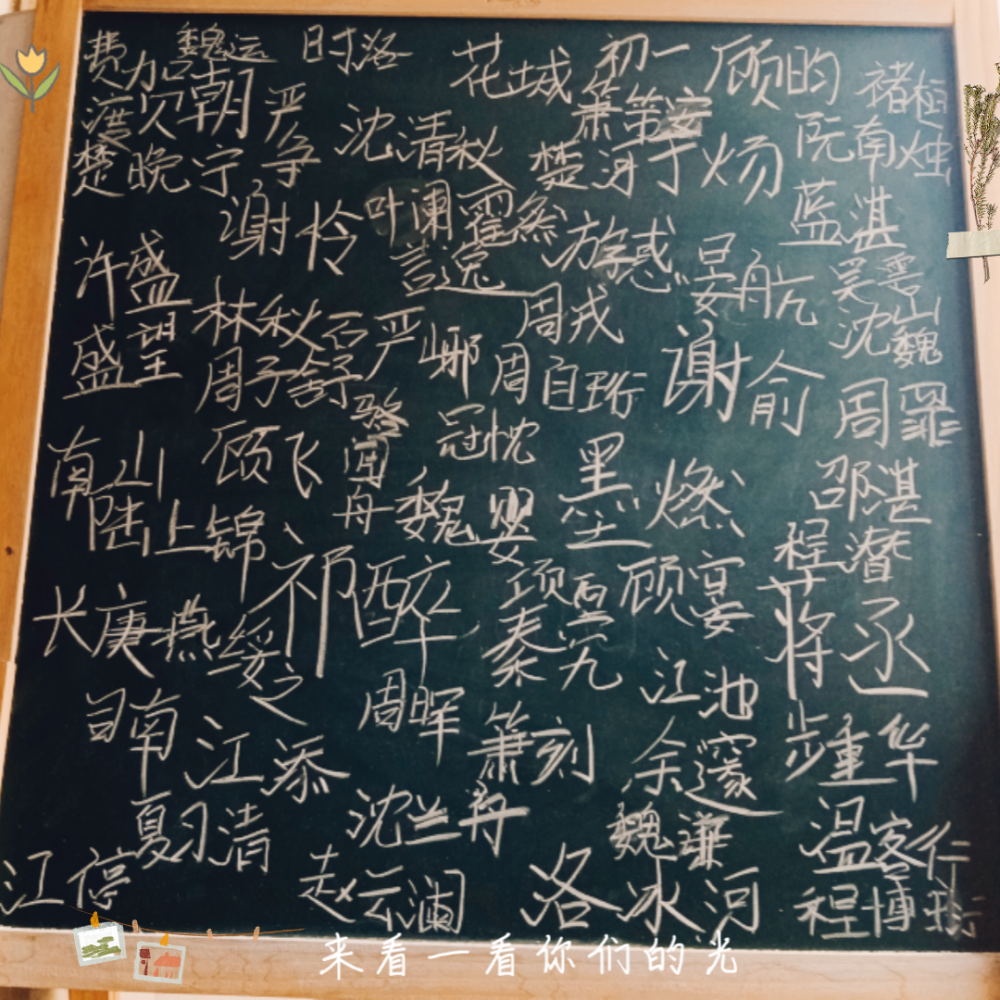 费加 魏运 时洛 花城 初一 顾昀 褚桓
渡 贝 朝 严争 沈清秋 萧第安 阮南烛
楚晚宁 楚河 丁炀
谢怜 叶阑 霍 游惑 蓝湛
言逸 晏航 吴雪山
许盛 林秋石 严峫 周戎 沈魏
盛望 周子舒 周白珩 谢俞 周罪
骆闻舟 冠忱
南山 顾飞 魏婴 黑 燃 邵湛
陆上锦 程潜
祁醉 项 顾宴 蒋丞
长庚 燕绥之 秦究 江池
司南 江添 周晖 萧刻 余邃 步重华
夏习清 沈兰舟 魏谦 温客行
江停 赵云澜 洛冰河 程博衍
来看一看你们的光